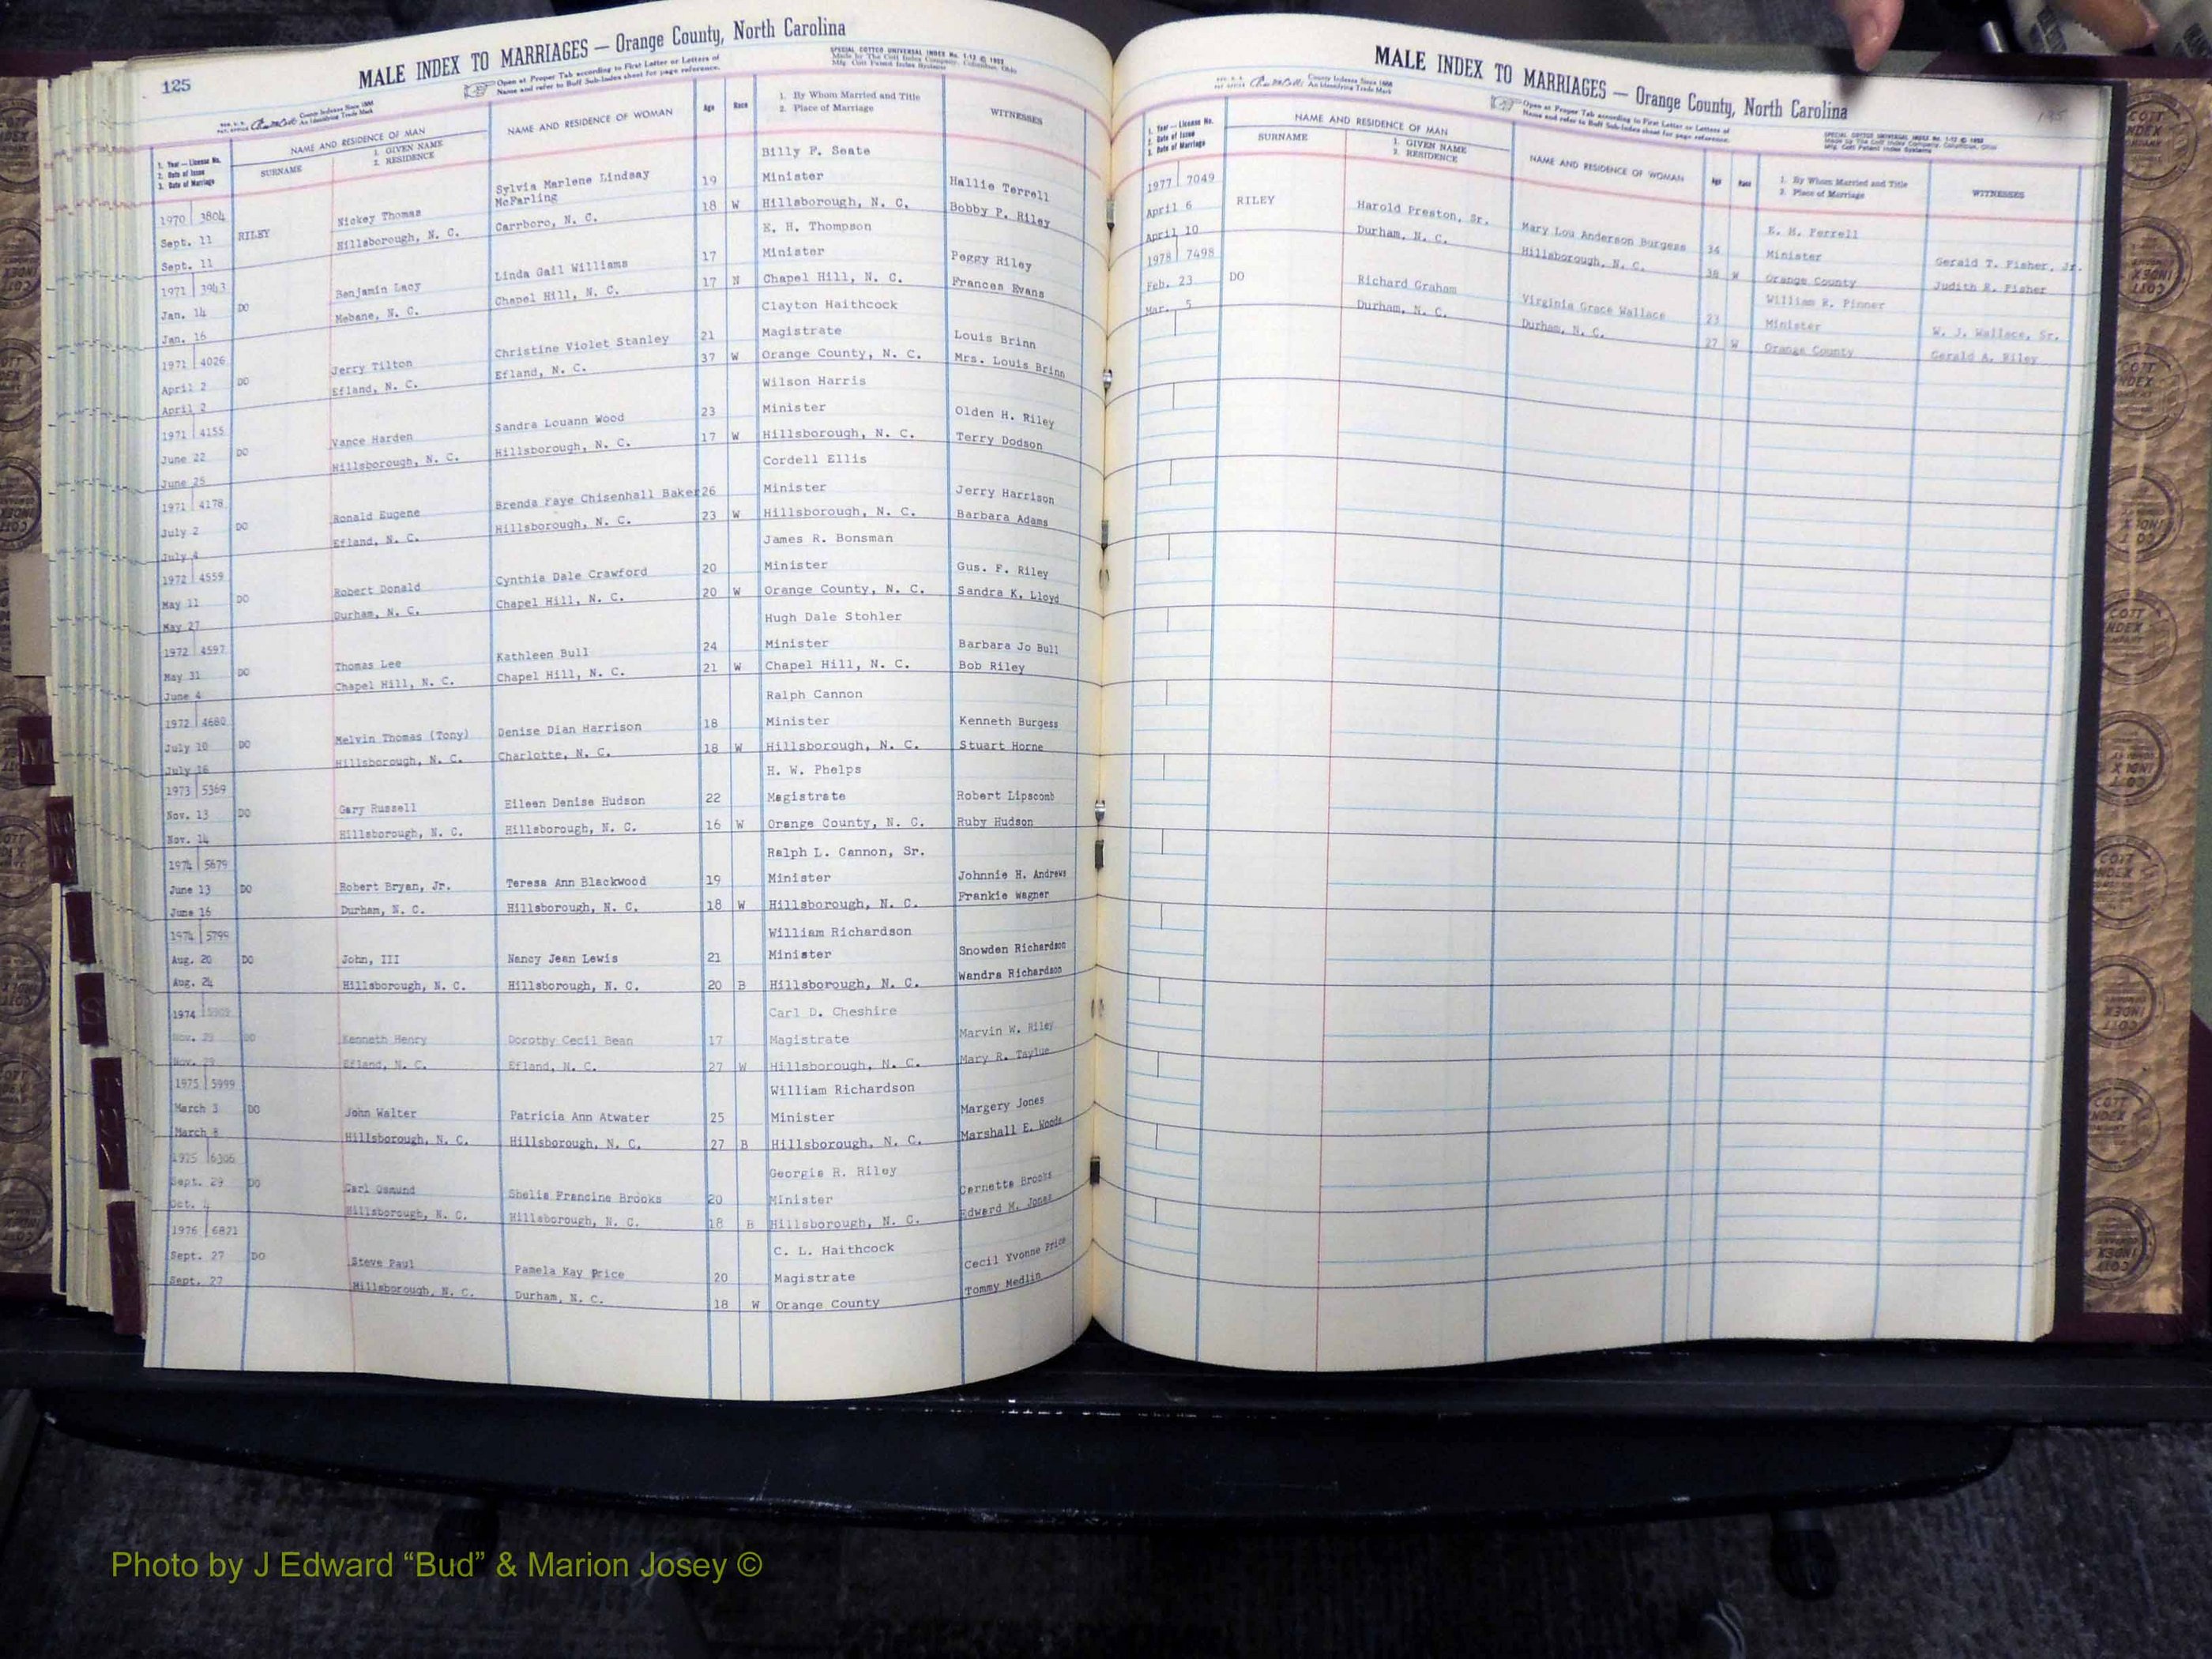 125
MALE INDEX TO MARRIAGES — Orange County, North Carolina
Open at Proper Tab according to First Letter or Letters of
Name and refer to Buff Sub-Index sheet for page reference.
SPECIAL COTTCO UNIVERSAL INDEX No. 1-12 © 1952
Made by The Cott Index Company, Columbus, Ohio
Mfg. Cott Patent Index Systems
County Indexes Since 1888
An Identifying Trade Mark
1. Year — License No.
2. Date of Issue
3. Date of Marriage
NAME AND RESIDENCE OF MAN
SURNAME
1. GIVEN NAME
2. RESIDENCE
NAME AND RESIDENCE OF WOMAN
Age
Race
1. By Whom Married and Title
2. Place of Marriage
WITNESSES
Billy F. Seate
1970 3804 Nickey Thomas Sylvia Marlene Lindsay McFarling 19 Minister Hallie Terrell
Sept. 11 RILEY Hillsborough, N. C. Carrboro, N. C. 18 W Hillsborough, N. C. Bobby P. Riley
Sept. 11
K. H. Thompson
1971 3943 Benjamin Lacy Linda Gail Williams 17 Minister Peggy Riley
Jan. 14 DO Mebane, N. C. Chapel Hill, N. C. 17 N Chapel Hill, N. C. Frances Evans
Jan. 16
Clayton Haithcock
1971 4026 Jerry Tilton Christine Violet Stanley 21 Magistrate Louis Brinn
April 2 DO Efland, N. C. Efland, N. C. 37 W Orange County, N. C. Mrs. Louis Brinn
April 2
Wilson Harris
1971 4155 Vance Harden Sandra Louann Wood 23 Minister Olden H. Riley
June 22 DO Hillsborough, N. C. Hillsborough, N. C. 17 W Hillsborough, N. C. Terry Dodson
June 25
Cordell Ellis
1971 4178 Ronald Eugene Brenda Faye Chisenhall Baker 26 Minister Jerry Harrison
July 2 DO Efland, N. C. Hillsborough, N. C. 23 W Hillsborough, N. C. Barbara Adams
July 4
James R. Bonsman
1972 4559 Robert Donald Cynthia Dale Crawford 20 Minister Gus. F. Riley
May 11 DO Durham, N. C. Chapel Hill, N. C. 20 W Orange County, N. C. Sandra K. Lloyd
May 27
Hugh Dale Stohler
1972 4597 Thomas Lee Kathleen Bull 24 Minister Barbara Jo Bull
May 31 DO Chapel Hill, N. C. Chapel Hill, N. C. 21 W Chapel Hill, N. C. Bob Riley
June 4
Ralph Cannon
1972 4680 Melvin Thomas (Tony) Denise Dian Harrison 18 Minister Kenneth Burgess
July 10 DO Hillsborough, N. C. Charlotte, N. C. 18 W Hillsborough, N. C. Stuart Horne
July 16
H. W. Phelps
1973 5369 Gary Russell Eileen Denise Hudson 22 Magistrate Robert Lipscomb
Nov. 13 DO Hillsborough, N. C. Hillsborough, N. C. 16 W Orange County, N. C. Ruby Hudson
Nov. 14
Ralph L. Cannon, Sr.
1974 5679 Robert Bryan, Jr. Teresa Ann Blackwood 19 Minister Johnnie H. Andrews
June 13 DO Durham, N. C. Hillsborough, N. C. 18 W Hillsborough, N. C. Frankie Wagner
June 16
William Richardson
1974 5799 John, III Nancy Jean Lewis 21 Minister Snowden Richardson
Aug. 20 DO Hillsborough, N. C. Hillsborough, N. C. 20 B Hillsborough, N. C. Wandra Richardson
Aug. 24
Carl D. Cheshire
1974 Kenneth Henry Dorothy Cecil Bean 17 Magistrate Marvin W. Riley
Nov. 29 DO Efland, N. C. Efland, N. C. 27 W Hillsborough, N. C. Mary R.
Nov. 29
William Richardson
1975 5999 John Walter Patricia Ann Atwater 25 Minister Margery Jones
March 3 DO Hillsborough, N. C. Hillsborough, N. C. 27 B Hillsborough, N. C. Marshall E. Woods
March 8
Georgia R. Riley
1975 6306 Carl Osmund Shelia Francine Brooks 20 Minister Brooks
Sept. 29 DO Hillsborough, N. C. Hillsborough, N. C. 18 B Hillsborough, N. C. Edward M. Jones
Oct. 4
C. L. Haithcock
1976 6821 Steve Paul Pamela Kay Price 20 Magistrate Cecil Yvonne Price
Sept. 27 DO Hillsborough, N. C. Durham, N. C. 18 W Orange County Tommy Medlin
Sept. 27
MALE INDEX TO MARRIAGES — Orange County, North Carolina
County Indexes Since 1888
An Identifying Trade Mark
Open at Proper Tab according to First Letter or Letters of
Name and refer to Buff Sub-Index sheet for page reference.
SPECIAL COTTCO UNIVERSAL INDEX No. 1-12 © 1952
Made by The Cott Index Company, Columbus, Ohio
Mfg. Cott Patent Index Systems
1. Year — License No.
2. Date of Issue
3. Date of Marriage
NAME AND RESIDENCE OF MAN
SURNAME
1. GIVEN NAME
2. RESIDENCE
NAME AND RESIDENCE OF WOMAN
Age
Race
1. By Whom Married and Title
2. Place of Marriage
WITNESSES
E. M. Ferrell
1977 7049 Harold Preston, Sr. Mary Lou Anderson Burgess 34 Minister Gerald T. Fisher, Jr.
April 6 RILEY Durham, N. C. Hillsborough, N. C. 38 W Orange County Judith R. Fisher
April 10
William R. Pinner
1978 7498 Richard Graham Virginia Grace Wallace 23 Minister W. J. Wallace, Sr.
Feb. 23 DO Durham, N. C. Durham, N. C. 27 W Orange County Gerald A. Riley
Mar. 5
M
S
Photo by J Edward “Bud” & Marion Josey ©